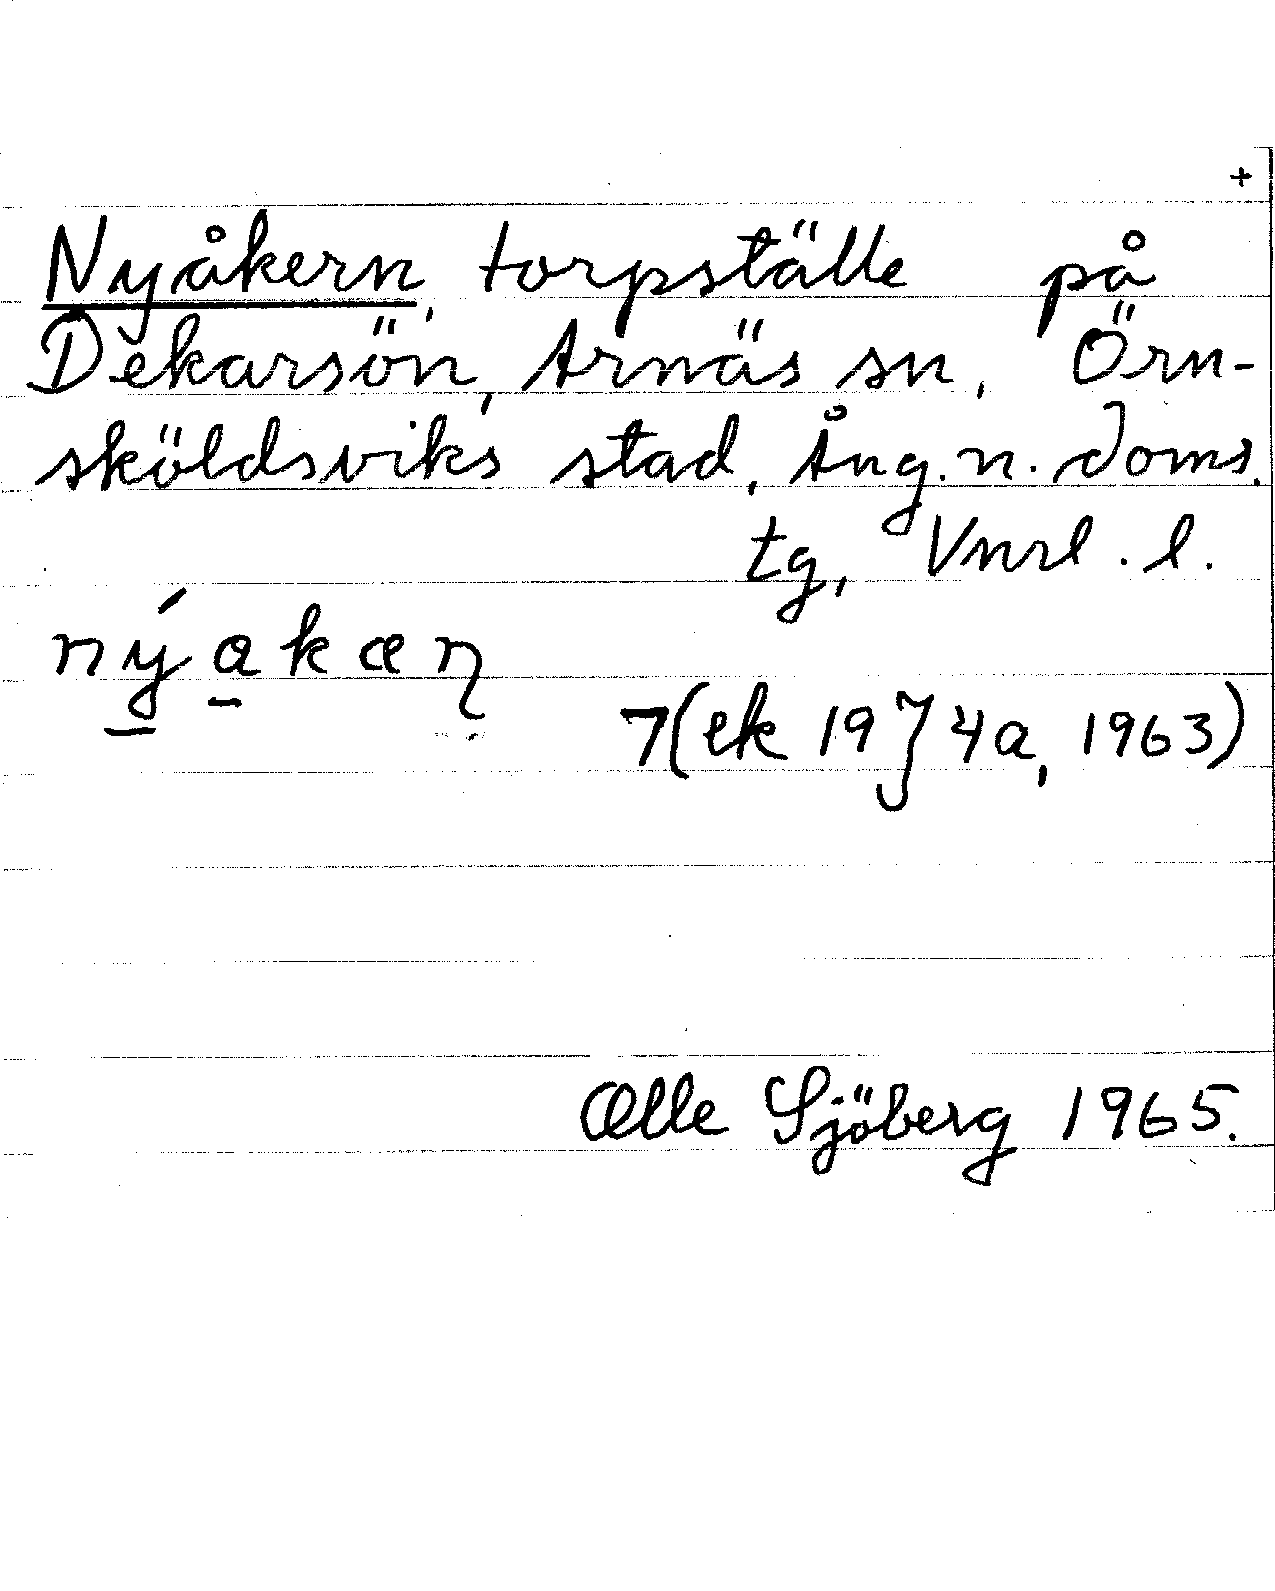 +
Nyåkern, torpställe på
Dekarsön, Arnäs sn, Örn-
sköldsviks stad, Ång. n. doms.
tg, Vnrl. l.
ný̱a̱kæɳ
7(ek 19 J 4a, 1963)
Olle Sjöberg 1965.